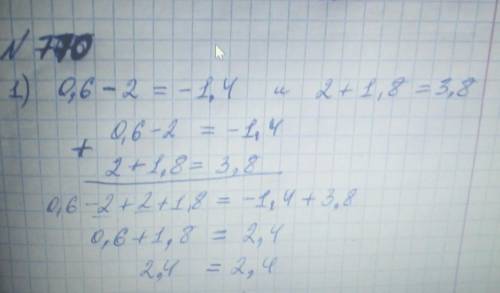 N 770
1) 0,6 - 2 = -1,4 и 2 + 1,8 = 3,8
+ 0,6 - 2 = -1,4
2 + 1,8 = 3,8
0,6 - 2 + 2 + 1,8 = -1,4 + 3,8
0,6 + 1,8 = 2,4
2,4 = 2,4